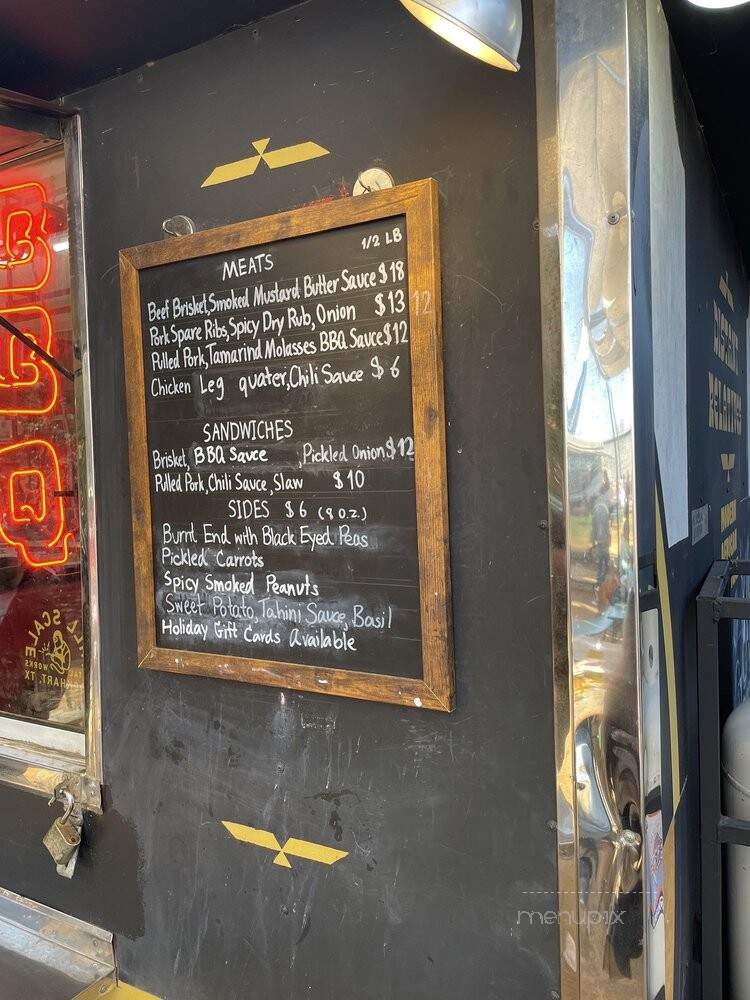 1/2 LB
MEATS
Beef Brisket, Smoked Mustard Butter Sauce $18
Pork Spare Ribs, Spicy Dry Rub, Onion $13 12
Pulled Pork, Tamarind Molasses BBQ Sauce $12
Chicken Leg quater, Chili Sauce $6
SANDWICHES
Brisket, BBQ Sauce , Pickled Onion $12
Pulled Pork, Chili Sauce, Slaw $10
SIDES $6 (9 O.Z.)
Burnt End with Black Eyed Peas
Pickled Carrots
Spicy Smoked Peanuts
Sweet Potato, Tahini Sauce, Basil
Holiday Gift Cards Available
BBQ
SCALE
WORKS
TX
DISTANT
RELATIVES
MODERN
menupix